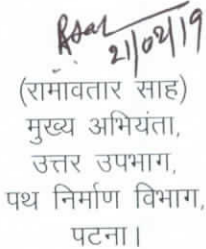 21/02/19
(रामावतार साह)
मुख्य अभियंता,
उत्तर उपभाग,
पथ निर्माण विभाग,
पटना।